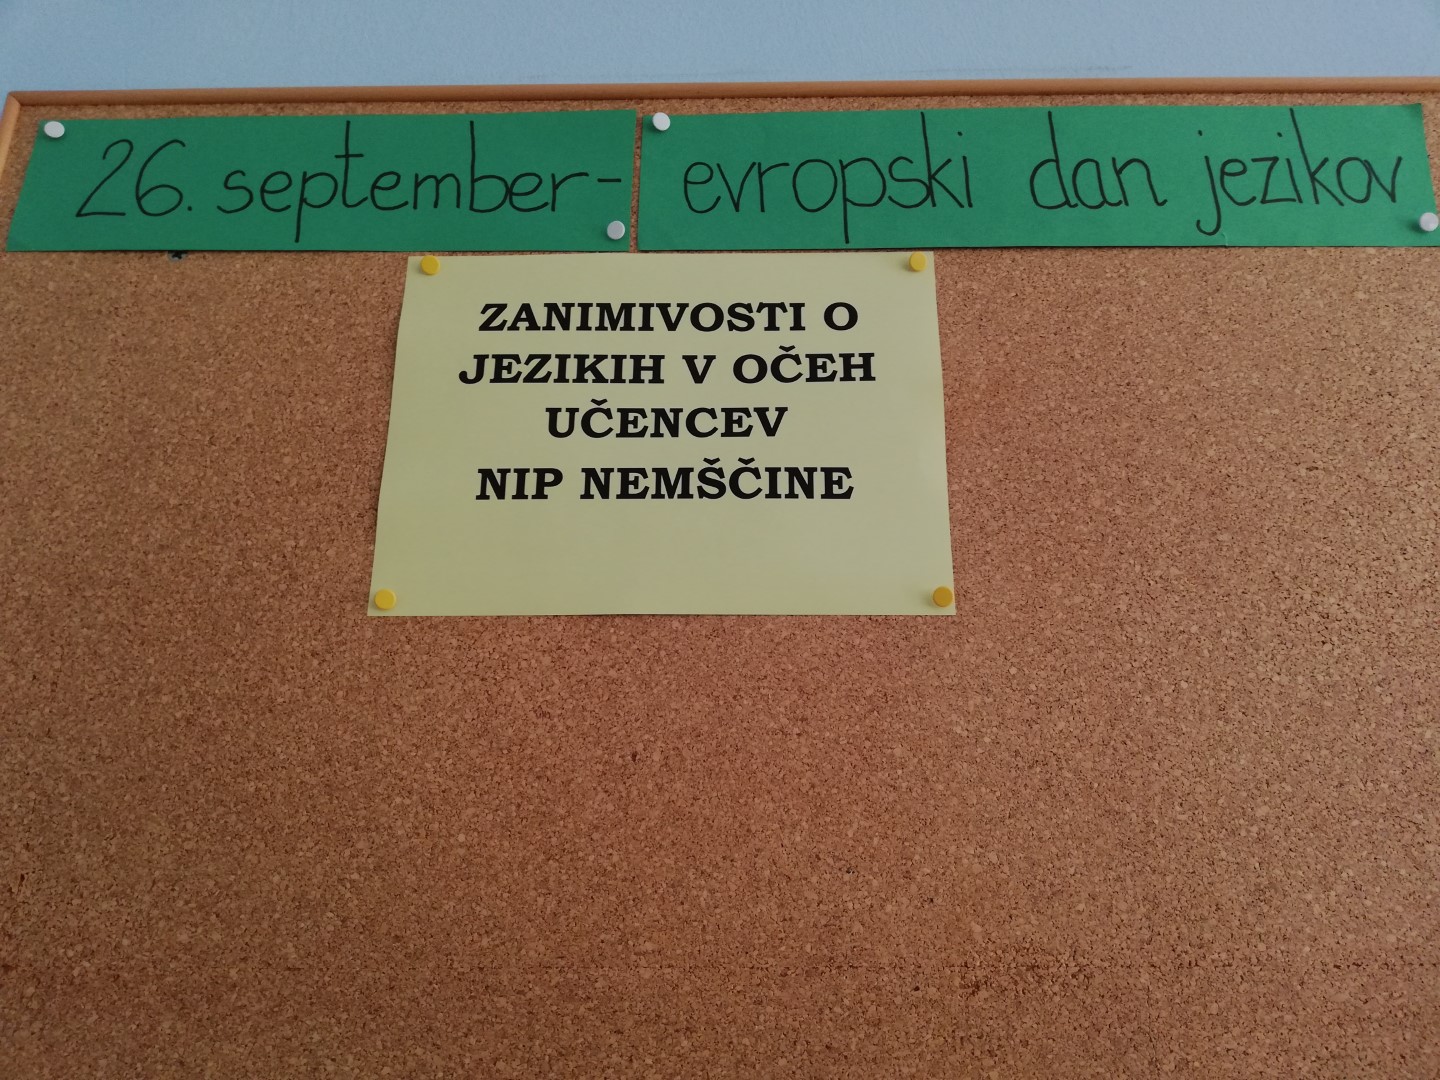 26. september- evropski dan jezikov
ZANIMIVOSTI O
JEZIKIH V OČEH
UČENCEV
NIP NEMŠČINE